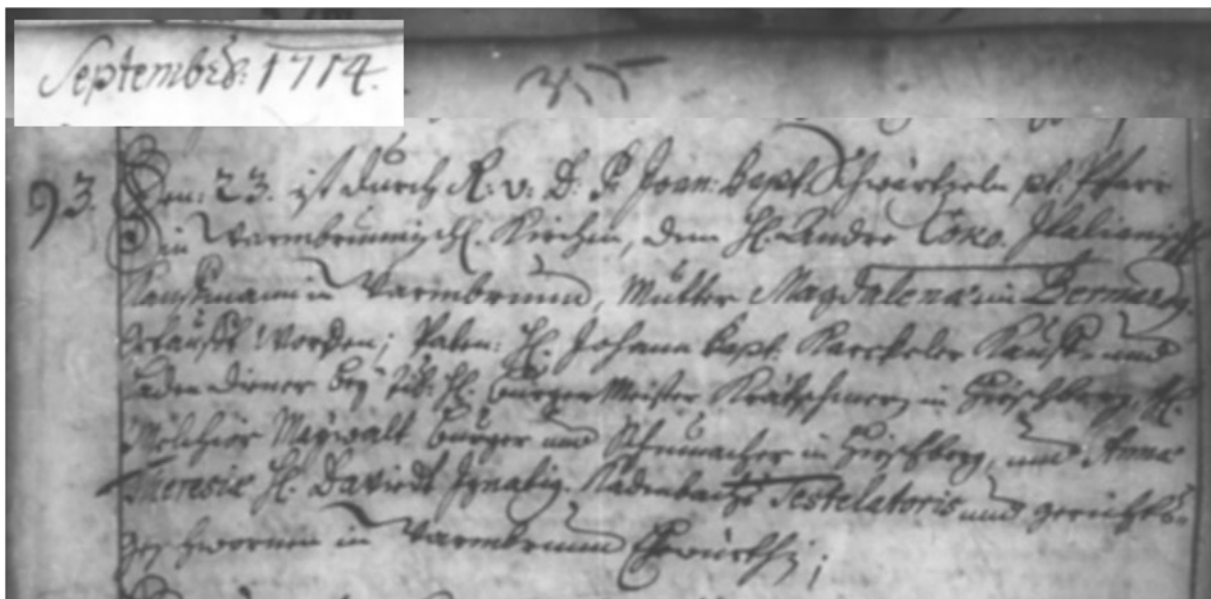 Septembris: 1714.
93. Den: 23. ist durch R: v: D: P. Joan: Bapt. Schwärtzeln pt: Pfarr
in Warmbrunnisch. Kirchen, dem H. Andre Coko. Italienisch
Kauffmann in Warmbrunn, Mutter Magdalena ein
getaufft worden; Paten: H. Johann Bapt. Karckeler Kauff- und
Laden Diener bey Tit: H. Burger Meister Kratschmern in Hirschberg, H.
Melchior Maywalt Burger und Schumacher in Hirschberg, und Anna
Theresia H. Davidt Ignatÿ Kadenbachs Testelatoris und gerichts-
geschwornen in Warmbrunn Ehewürthin;